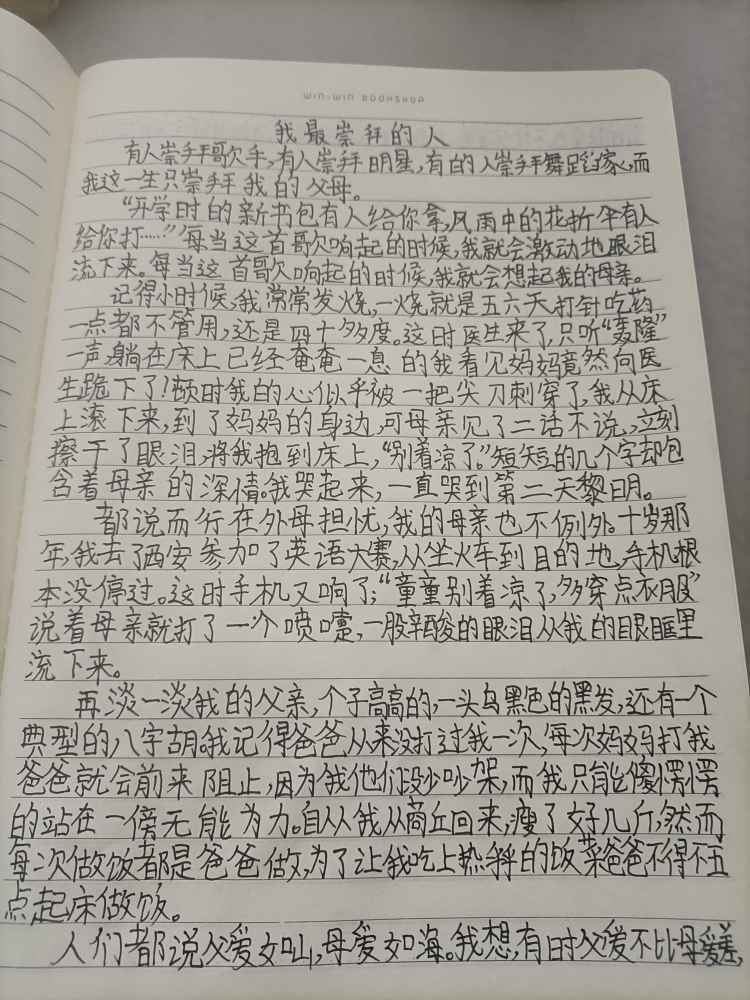 WIN-WIN BOOKSHOP
我最崇拜的人
有人崇拜歌手，有人崇拜明星，有的人崇拜舞蹈家，而
我这一生只崇拜我的父母。
“开学时的新书包有人给你拿，风雨中的花折伞有人
给你打……”每当这首歌响起的时候，我就会激动地眼泪
流下来。每当这首歌响起的时候，我就会想起我的母亲。
记得小时候，我常常发烧，一烧就是五六天打针吃药
一点都不管用，还是四十多度。这时医生来了，只听“轰隆”
一声，躺在床上已经奄奄一息的我看见妈妈竟然向医
生跪下了！顿时我的心似乎被一把尖刀刺穿了，我从床
上滚下来，到了妈妈的身边，可母亲见了二话不说，立刻
擦干了眼泪，将我抱到床上，“别着凉了。”短短的几个字却包
含着母亲的深情。我哭起来，一直哭到第二天黎明。
都说而行在外母担忧，我的母亲也不例外。十岁那
年，我去了西安参加了英语大赛，从坐火车到目的地，手机根
本没停过。这时手机又响了；“童童别着凉了，多穿点衣服”
说着母亲就打了一个喷嚏，一股辛酸的眼泪从我的眼眶里
流下来。
再淡一淡我的父亲，个子高高的，一头乌黑色的黑发，还有一个
典型的八字胡。我记得爸爸从来没打过我一次，每次妈妈打我
爸爸就会前来阻止，因为俄他们没少吵架，而我只能傻愣愣
的站在一傍无能为力。自从我从商丘回来，瘦了好几斤，然而
每次做饭都是爸爸做，为了让我吃上热乎的饭菜爸爸不得不五
点起床做饭。
人们都说父爱如山，母爱如海。我想，有时父爱不比母爱差，